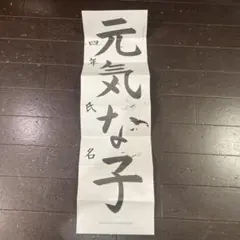 元気な子
四年 氏名